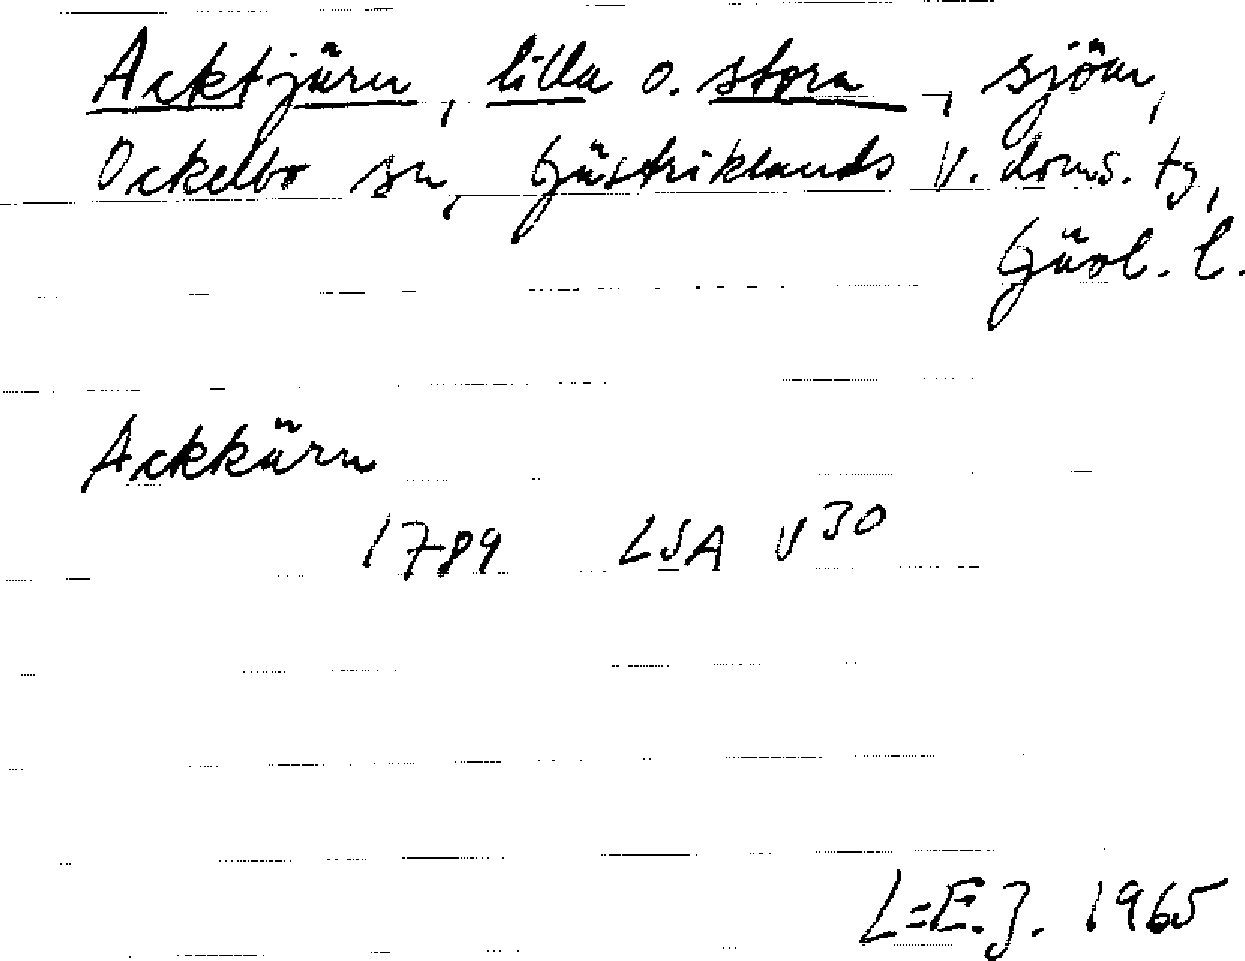 Acktjärn, lilla o. stora, sjöar,
Ockelbo sn, Gästriklands V. doms. tg,
Gävl. l.
Ackkärn
1789 LSA V30
L=E.J. 1965